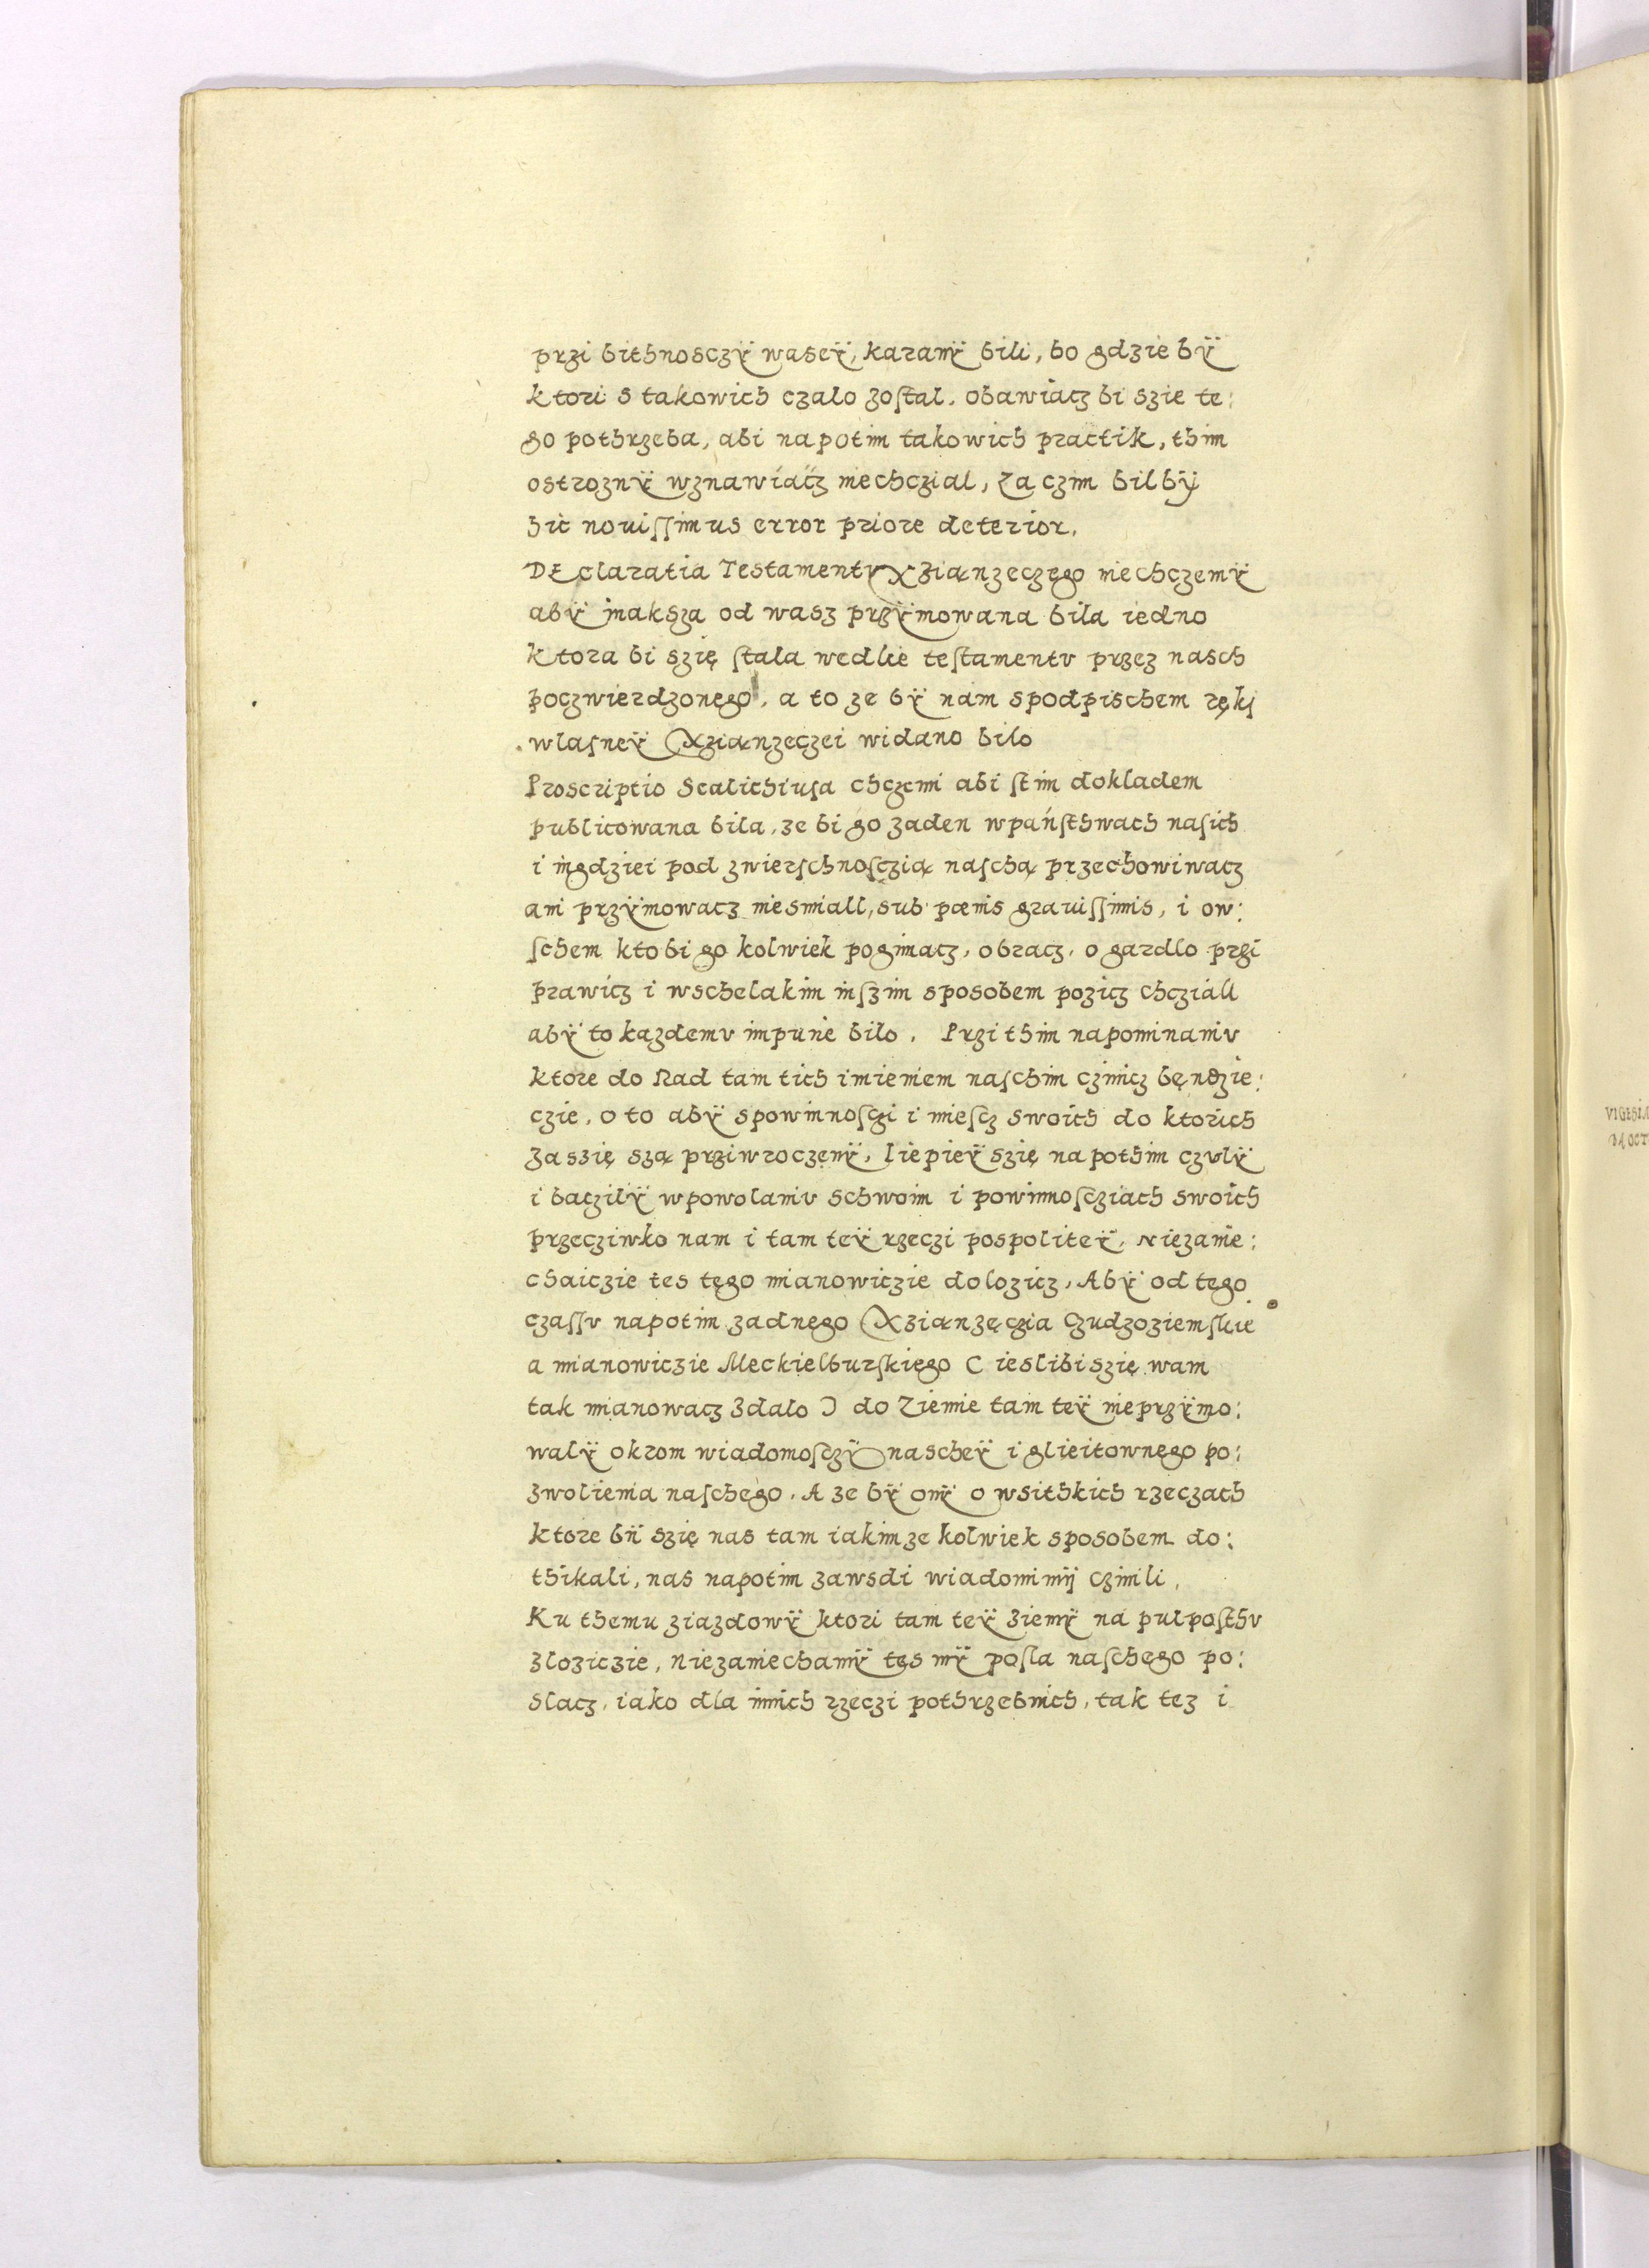 przi bithnosczÿ waseÿ, karanÿ bili, bo gdzie bÿ
ktori s takowich czalo zostal, obawiacz bi szie te:
go pothrzeba, abi napotim takowich practik, thim
ostroznÿ wznawiacz niechczial, Za czim bil bÿ
sic nouissimus error priore deterior.
DEclaratia Testamentv Xzianzeczego niechczemÿ
abÿ inaksza od wasz przÿmowana bila iedno
ktora bi szię stala wedlie testamentv przez nasch
poczwierdzonego, a to ze bÿ nam spodpischem ręki
wlasneÿ Xzianzeczei widano bilo
Proscriptio Scalichiusa chczemi abi stim dokladem
publicowana bila, ze bi go zaden wpaństhwach nasich
i nigdziei pod zwierschnosczią naschą przechowiwacz
ani przÿmowacz niesmiall, sub pœnis grauissimis, i ow:
schem kto bi go kolwiek pogimacz, obracz, o gardlo przi
prawicz i wschelakim inszim sposobem pozicz chcziall
abÿ to kazdemv impune bilo. Przi thim napominaniv
ktore do Rad tam tich imieniem naschim czinicz będzie:
czie, o to abÿ spowinnosczi i miescz swoich do ktorich
zaszię szą przÿwroczenÿ, liepieÿ szię na pothim czulÿ
i baczilÿ wpowolaniv schwoim i powinnoscziach swoich
przecziwko nam i tam teÿ rzeczi pospoliteÿ, Niezanie:
chaiczie tes tego mianowiczie dolozicz, Abÿ od tego
czassv napotim zadnego Xzianzęczia Czudzoziemskie
a mianowiczie Meckielburskiego ( ieslibi szię wam
tak mianowacz zdalo ) do Ziemie tam teÿ nieprzÿmo:
walÿ okrom wiadomosczÿ nascheÿ i glieitownego po:
zwolienia naschego. A ze bÿ onÿ o wsithkich rzeczach
ktore bÿ szię nas tam iakimze kolwiek sposobem do:
thikali, nas napotim zawsdi wiadomimij czinili.
Ku themu ziazdowÿ ktori tam teÿ ziemÿ na pulposthv
zloziczie, Niezaniechamÿ tes mÿ posla naschego po:
slacz, iako dla innich rzeczi pothrzebnich, tak tez i